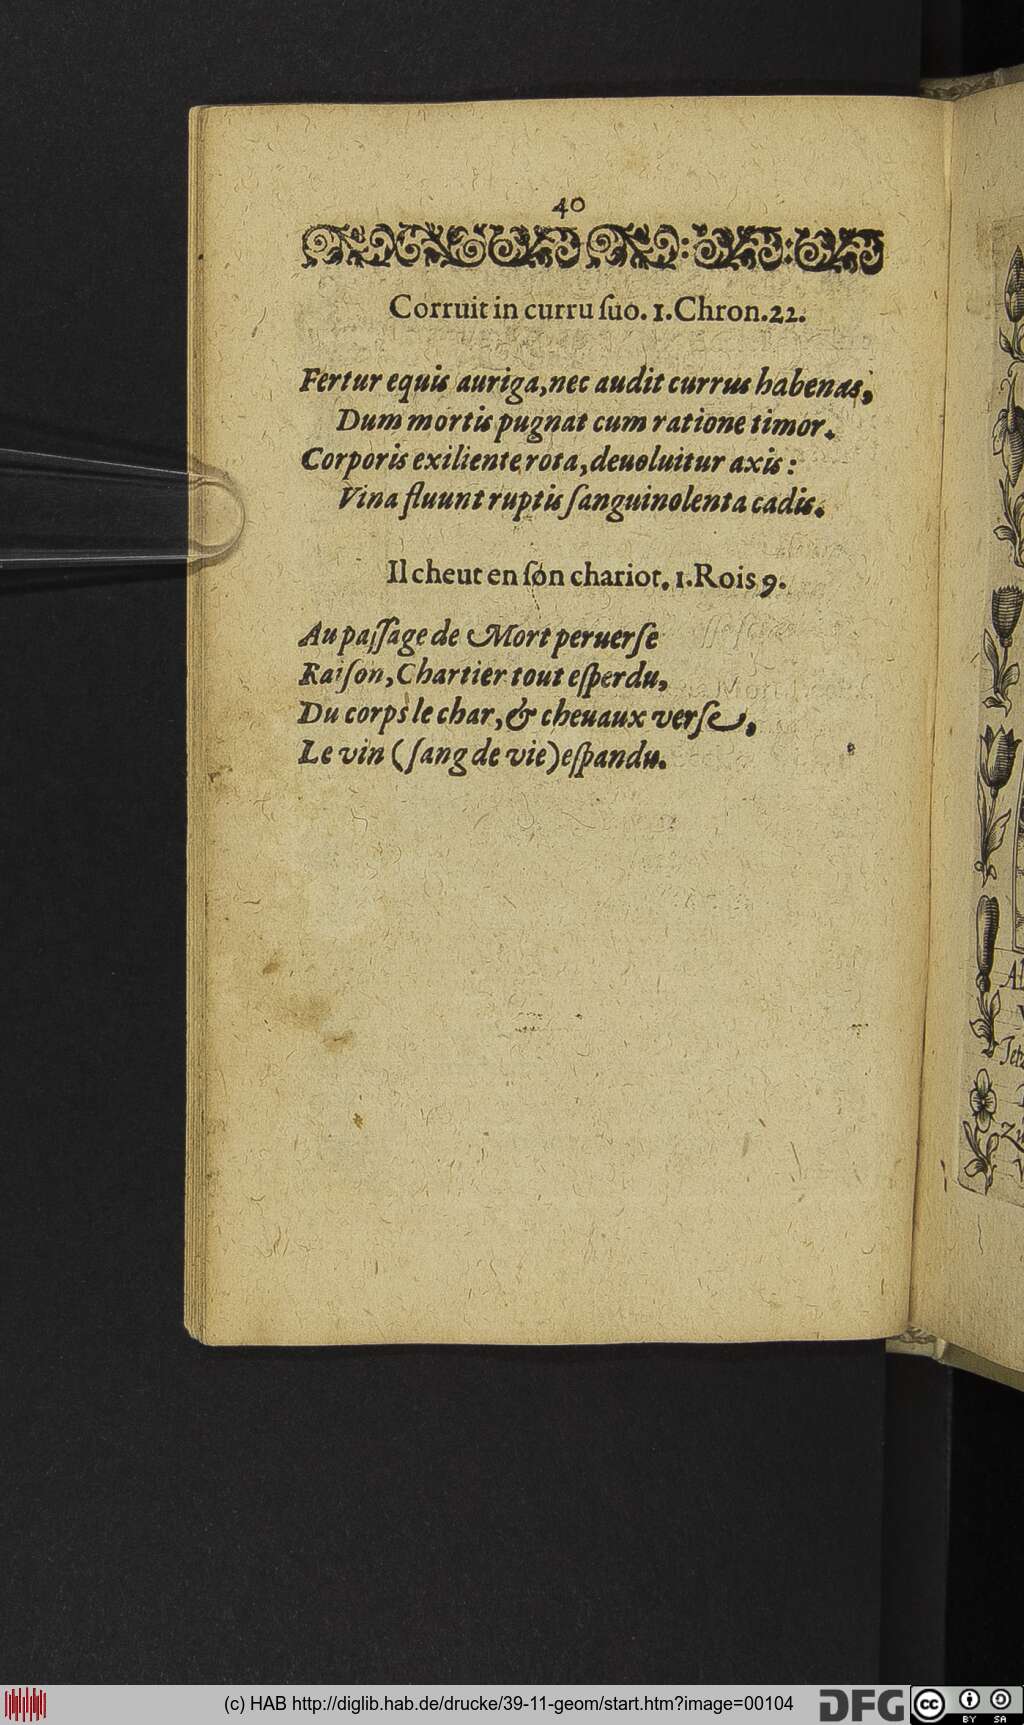 40
Corruit in curru ſuo. 1. Chron. 22.
Fertur equis auriga, nec audit currus habenas,
Dum mortis pugnat cum ratione timor.
Corporis exiliente rota, deuoluitur axis:
Vina fluunt ruptis ſanguinolenta cadis.
Il cheut en ſon chariot. 1. Rois 9.
Au paſſage de Mort peruerſe
Raiſon, Chartier tout eſperdu,
Du corps le char, & cheuaux verſe,
Le vin (ſang de vie) eſpandu.
(c) HAB http://diglib.hab.de/drucke/39-11-geom/start.htm?image=00104
DFG
cc
BY SA